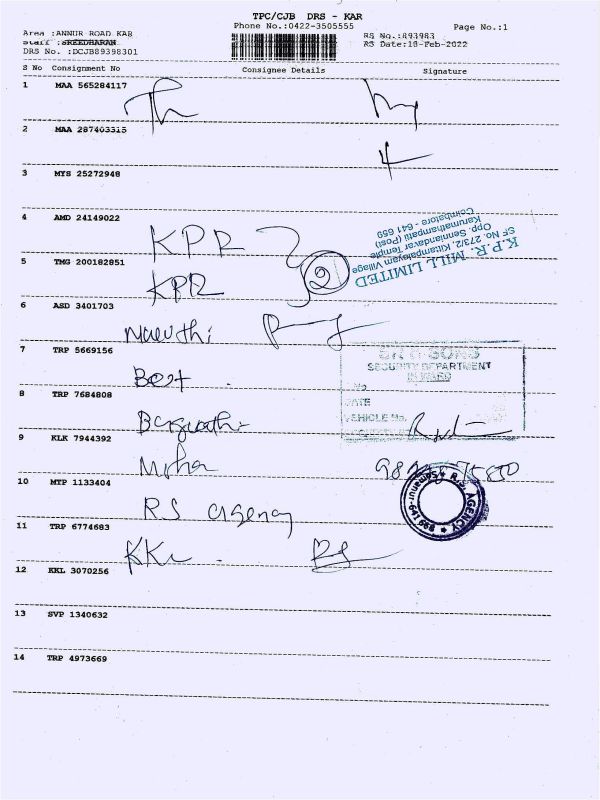 TPC/CJB DRS - KAR
Phone No.:0422-3505555
Page No.:1
Area :ANNUR ROAD KAR
Staff :SREEDHARAN
DRS No. :DCJB89398301
RS No.:893983
RS Date:18-Feb-2022
S No Consignment No Consignee Details Signature
1 MAA 565284117
2 MAA 287403315
3 MYS 25272948
4 AMD 24149022
KPR
K.P.R. MILL LIMITED
SF No. 273/2, Kittampalayam Village
Opp. Senniandavar Temple
Karumathampatti (Post)
Coimbatore - 641 659
5 TMG 200182851
KPR
2
6 ASD 3401703
Maruthi
7 TRP 5669156
Best
SECURITY DEPARTMENT
INWARD
No
DATE
VEHICLE No.
8 TRP 7684808
9 KLK 7944392
10 MTP 1133404
RS agency
AGENCY
11 TRP 6774683
12 KKL 3070256
13 SVP 1340632
14 TRP 4973669